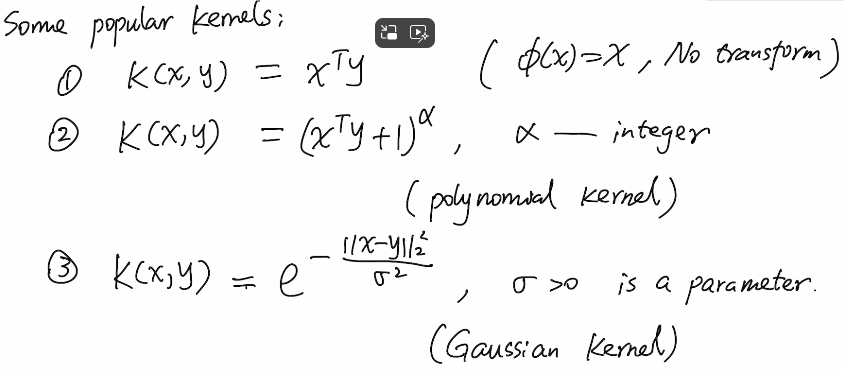 Some popular kernels:
① K(x, y) = xᵀy ( ϕ(x)=x , No transform )
② K(x,y) = (xᵀy +1)^α , α — integer
( polynomial kernel )
③ K(x,y) = e^{- ||x-y||₂² / σ²} , σ >0 is a parameter.
(Gaussian Kernel)